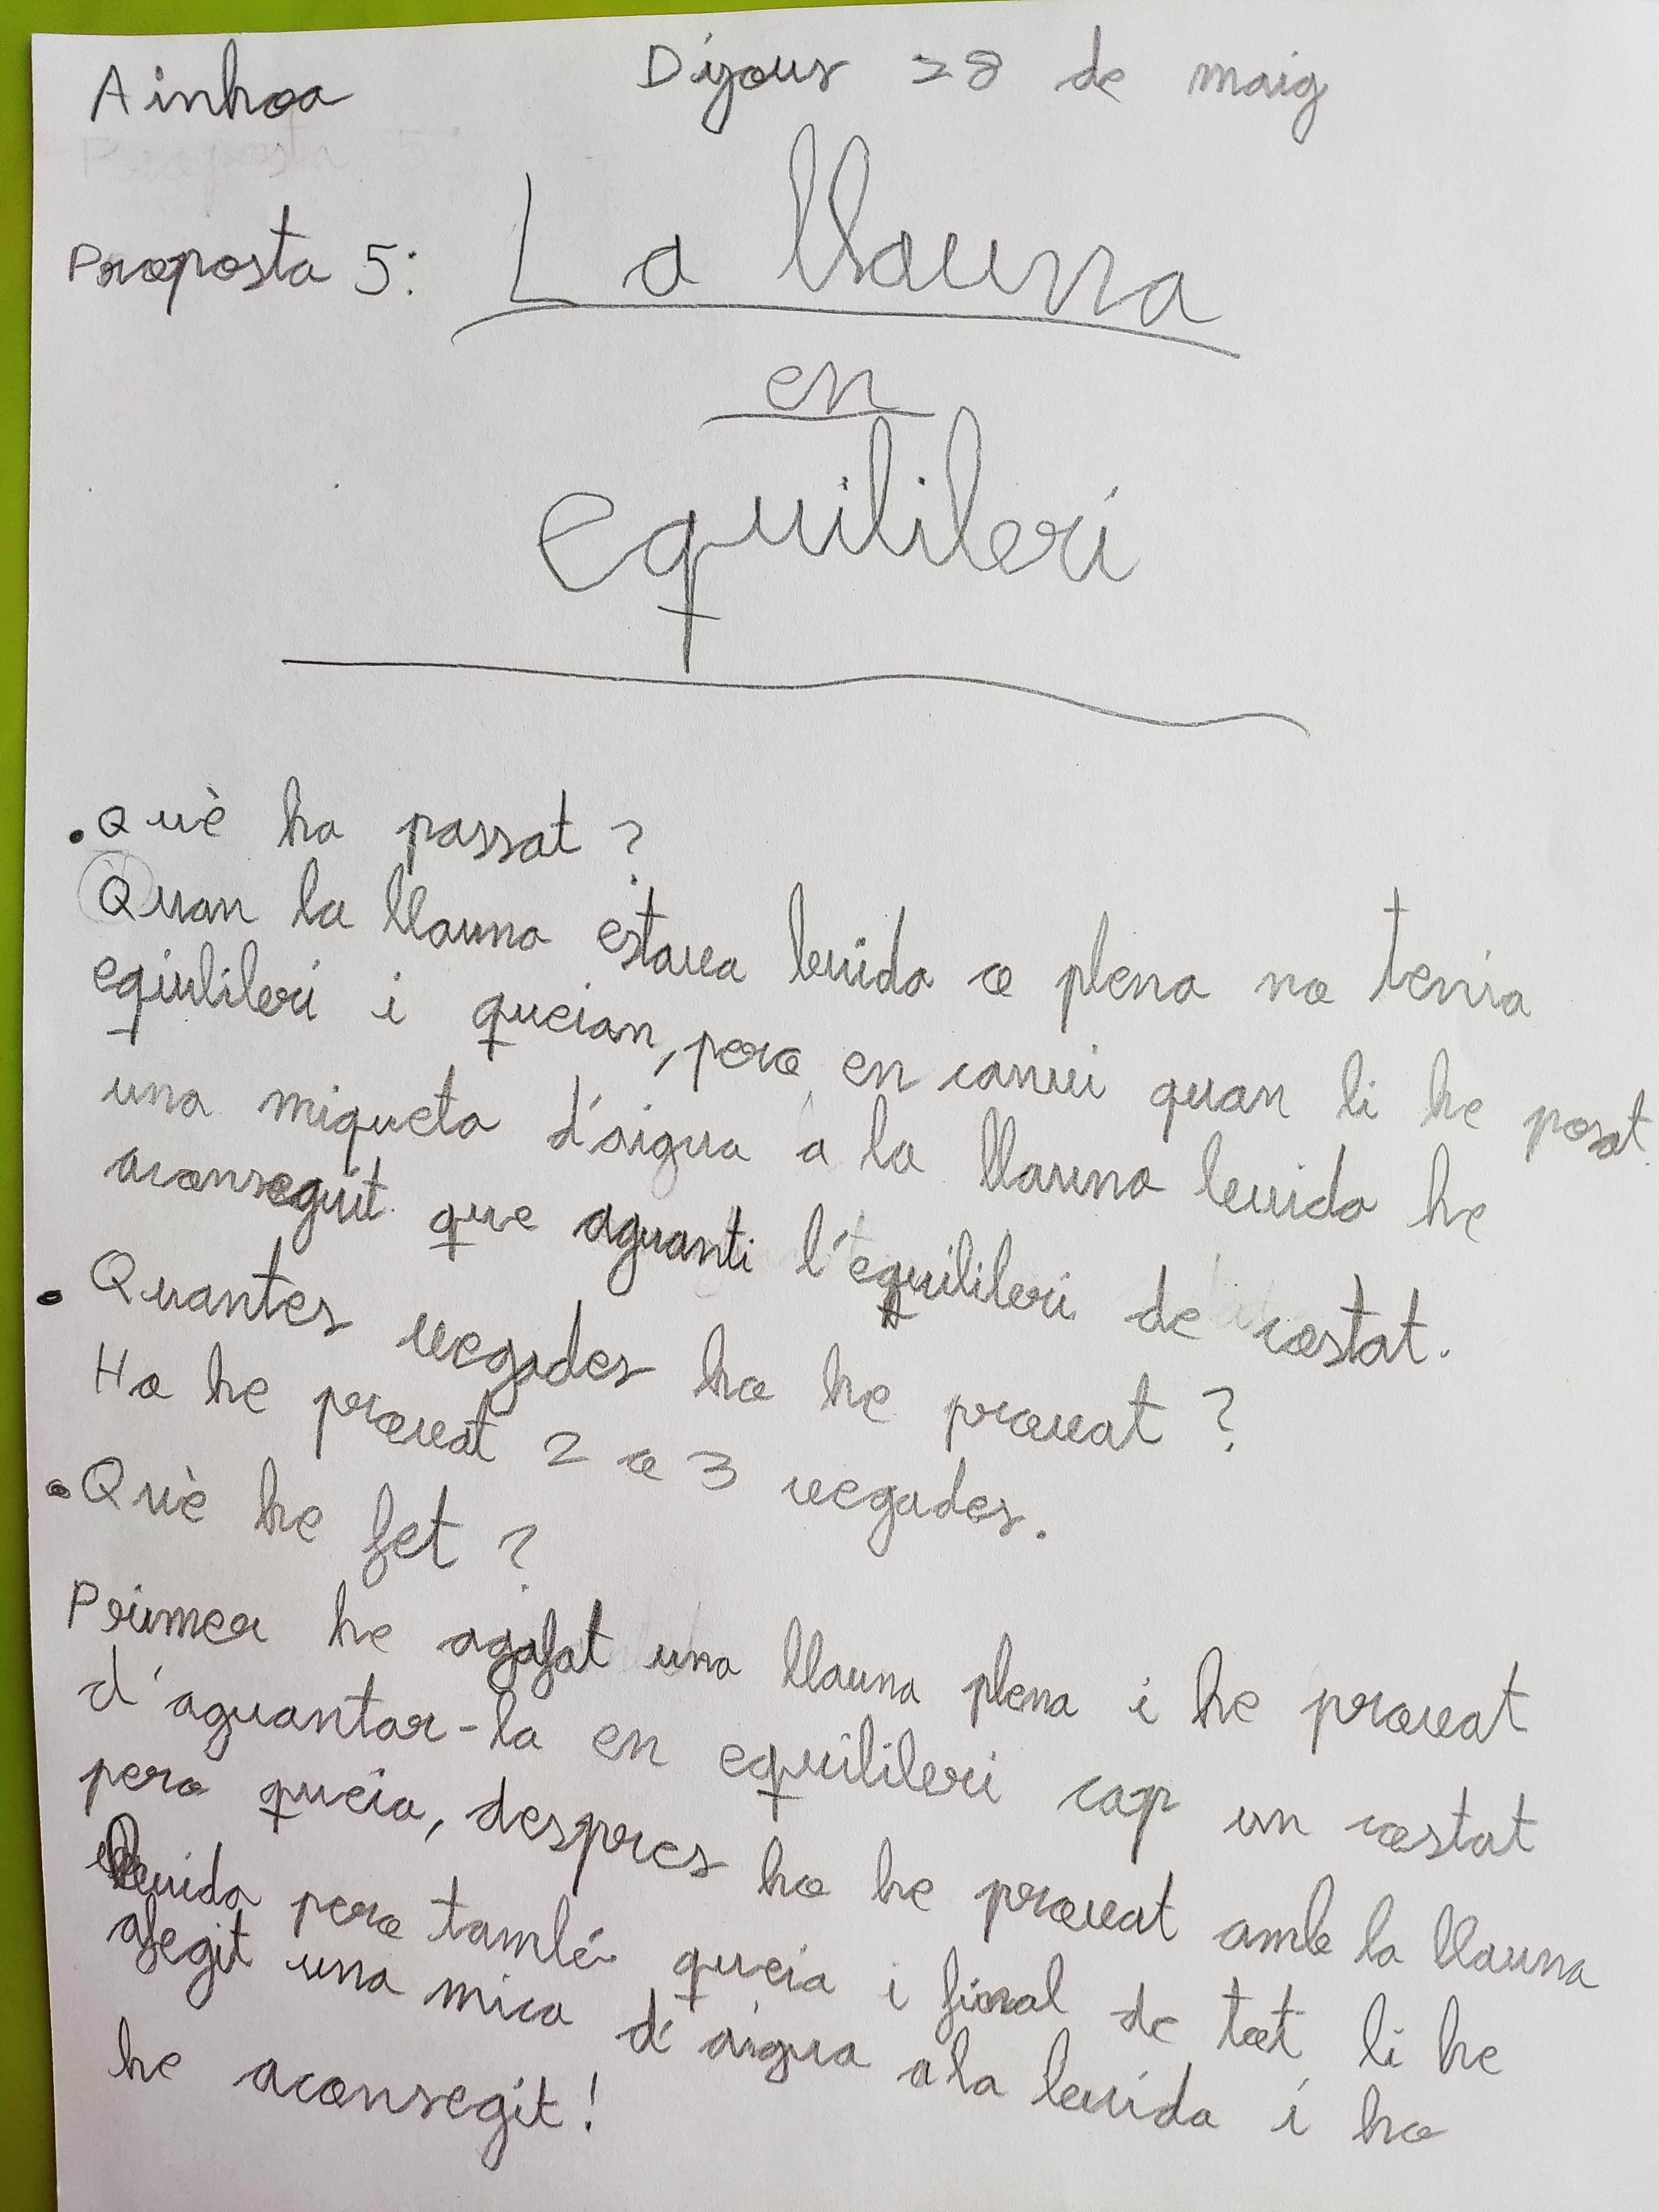 Ainhoa
Dijous 28 de maig
Proposta 5: La llauna
en
equilibri
. Què ha passat?
Quan la llauna estava buida o plena no tenia
eqiulibri i queian, pero en canvi quan li he posat
una miqueta d'aigua a la llauna buida he
aconseguit que aguanti l'equilibri de costat.
. Quantes vegades ho he provat?
Ho he provat 2 o 3 vegades.
. Què he fet?
Primer he agafat una llauna plena i he provat
d'aguantar-la en equilibri cap un costat
pero queia, despres ho he provat amb la llauna
buida pero també queia i final de tot li he
afegit una mica d'aigua a la buida i ho
he aconsegit!